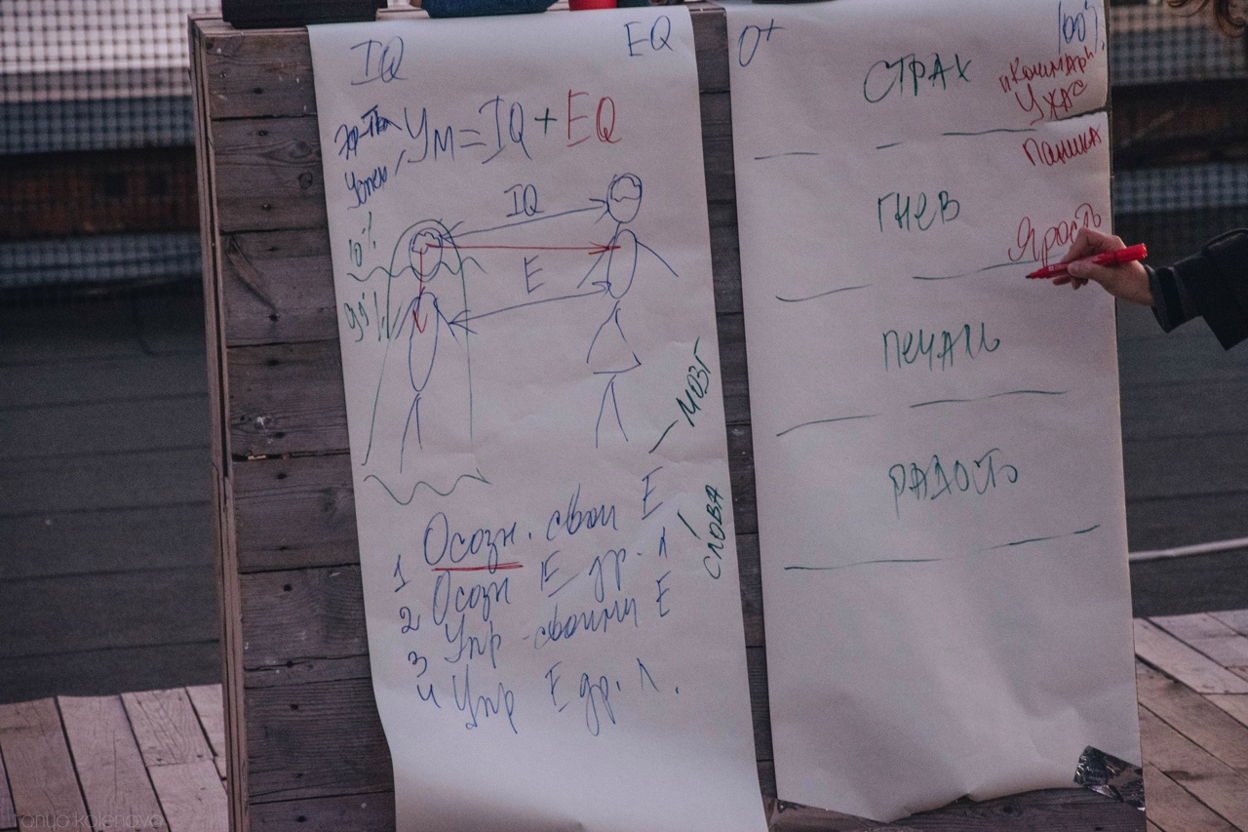 IQ EQ
Эф-ть Ум = IQ + EQ
Успех
IQ
10%
E
90%
МОЗГ
СЛОВА
1 Осозн. свои E
2 Осозн E др. Л
3 Упр своими E
4 Упр E др. Л.
0+ 100%
СТРАХ
"Кошмар"
Ужас
Паника
ГНЕВ
Ярость
ПЕЧАЛЬ
РАДОСТЬ